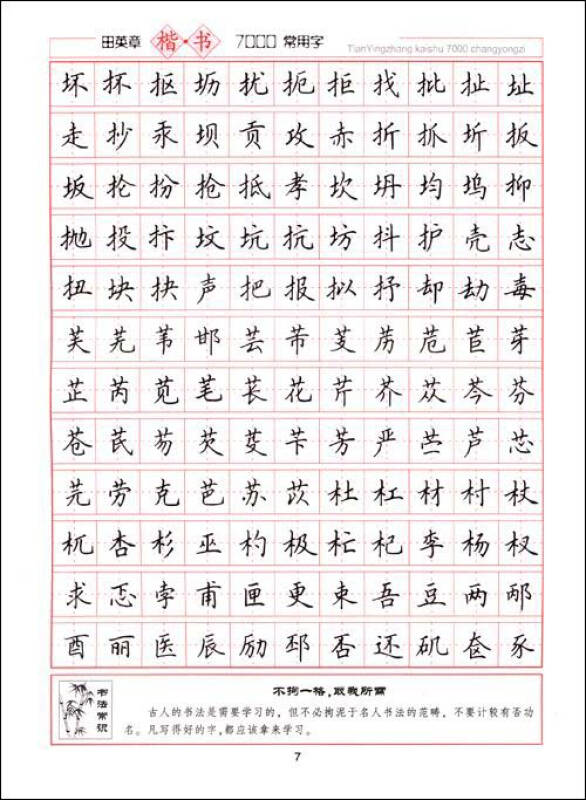 田英章 楷·书 7000 常用字
TianYingzhang kaishu 7000 changyongzi
坏 抔 抠 坜 扰 扼 拒 找 批 扯 址
走 抄 汞 坝 贡 攻 赤 折 抓 圻 扳
坂 抡 扮 抢 抵 孝 坎 坍 均 坞 抑
抛 投 抃 坟 坑 抗 坊 抖 护 壳 志
扭 块 抉 声 把 报 拟 抒 却 劫 毐
芙 芜 苇 邯 芸 芾 芰 苈 苊 苣 芽
芷 芮 苋 芼 苌 花 芹 芥 苁 芩 芬
苍 芪 芴 芡 芟 苄 芳 严 苎 芦 芯
芫 劳 克 芭 苏 苡 杜 杠 材 村 杖
杌 杏 杉 巫 杓 极 杧 杞 李 杨 杈
求 忑 孛 甫 匣 更 束 吾 豆 两 邴
酉 丽 医 辰 励 邳 否 还 矶 奁 豕
书法常识
不拘一格,取我所需
古人的书法是需要学习的，但不必拘泥于名人书法的范畴，不要计较有否功
名。凡写得好的字,都应该拿来学习。
7